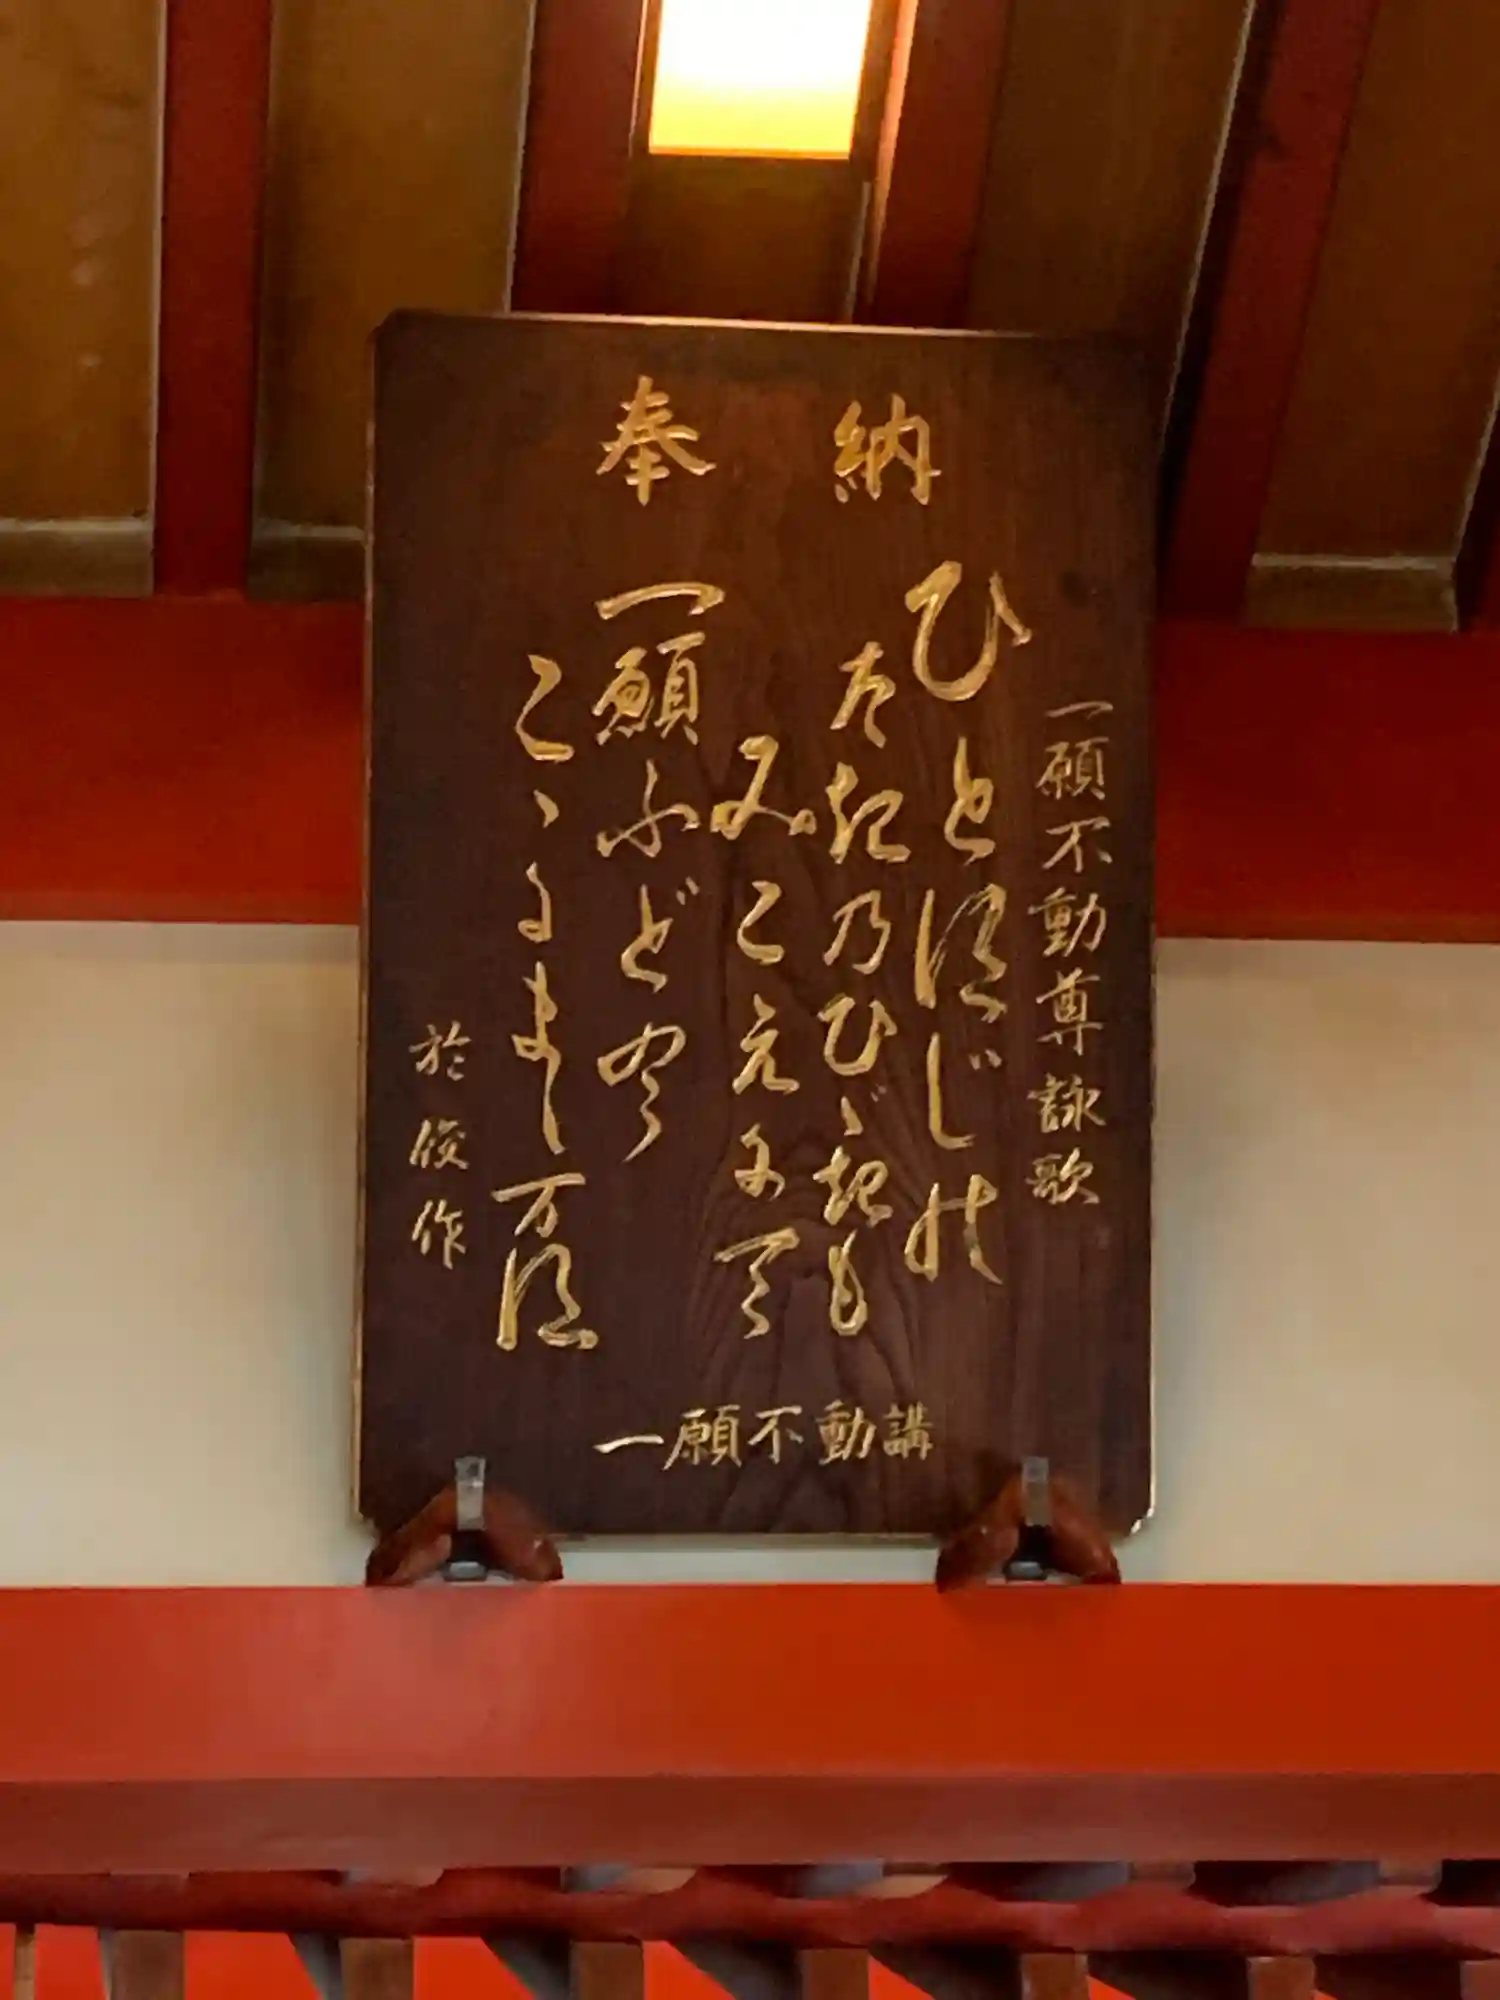 奉納
一願不動尊詠歌
ひと須じ能
た起乃ひゞ起も
みこえ尓て
一願ふどう
こゝ尓まし万須
於俊作
一願不動講